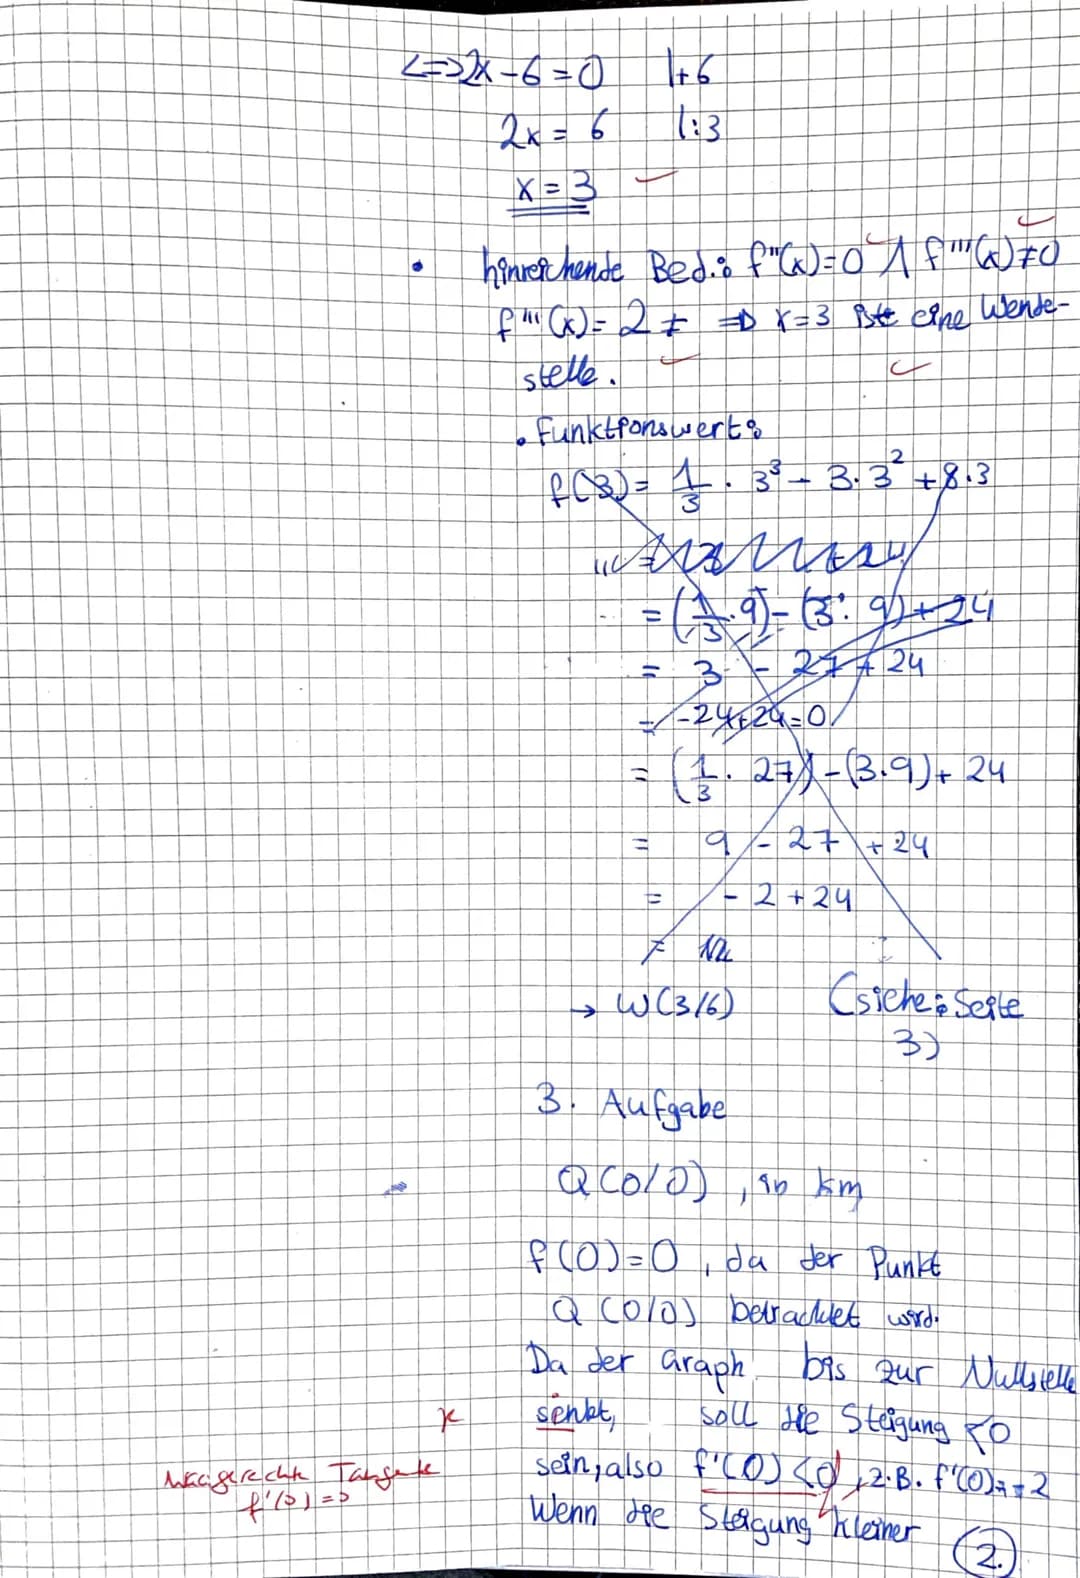 <=>2x-6=0 |+6
2x = 6 |:3
x = 3
• hinreichende Bed.: f''(x)=0 ∧ f'''(x)≠0
f'''(x)= 2 ≠ => x=3 ist eine Wende-
stelle.
• Funktionswert:
f(3)= 1/3 · 3³ - 3·3² +8·3
= (1/3 · 9) - (3 · 9) + 24
= 3 - 27 + 24
= -24+24=0
= (1/3 · 27) - (3·9) + 24
= 9 - 27 + 24
= - 2 + 24
→ W(3/6) (siehe: Seite
3)
3. Aufgabe
Q(0/0), in km
f(0)=0, da der Punkt
Q(0/0) betrachtet wird.
Da der Graph bis zur Nullstelle
senkt, soll die Steigung <0
waagerechte Tangente
f'(0)=0
sein, also f'(0)<0, z.B. f'(0)=-2
Wenn die Steigung kleiner
2.